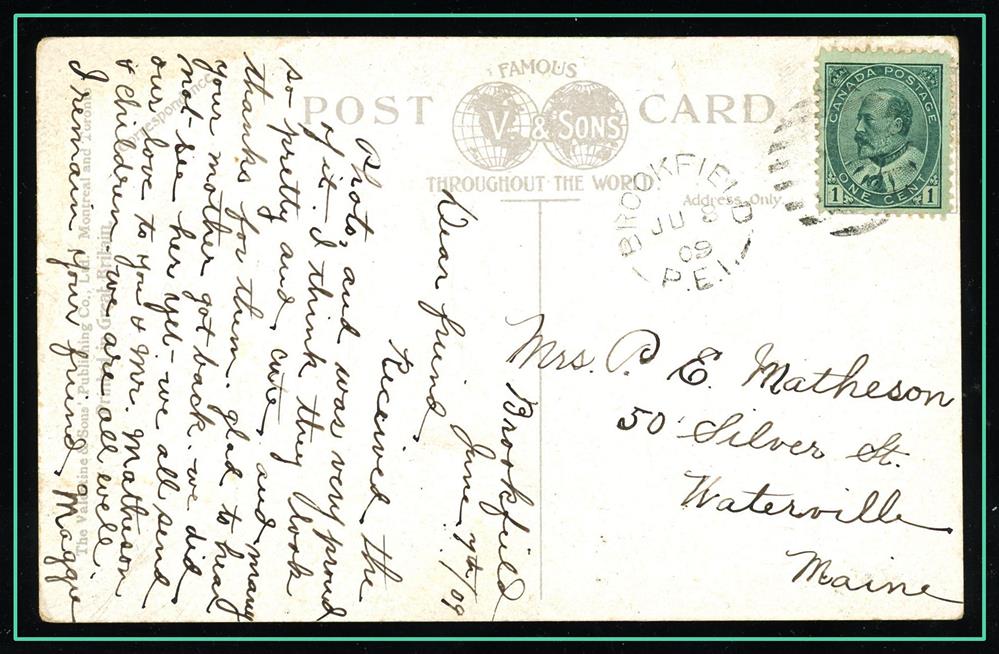 FAMOUS
POST CARD
V. & SONS
THROUGHOUT THE WORLD.
Address Only.
Correspondence
CANADA POSTAGE
ONE CENT
1 1
BROOKFIELD
JU 8
09
P.E.I.
Mrs. P. E. Matheson
50 Silver St.
Waterville
Maine
Brookfield
June 7th/09
Dear friend,
Received the
Photo, and was very proud
of it. I think they look
so pretty and cute, and many
thanks for them. glad to hear
your mother got back. we did
not see her yet - we all send
our love to you & Mr. Matheson
& Children - we are all well.
I remain your friend. Maggie
The Valentine & Sons' Publishing Co., Ltd. Montreal and Toronto
Printed in Great Britain.